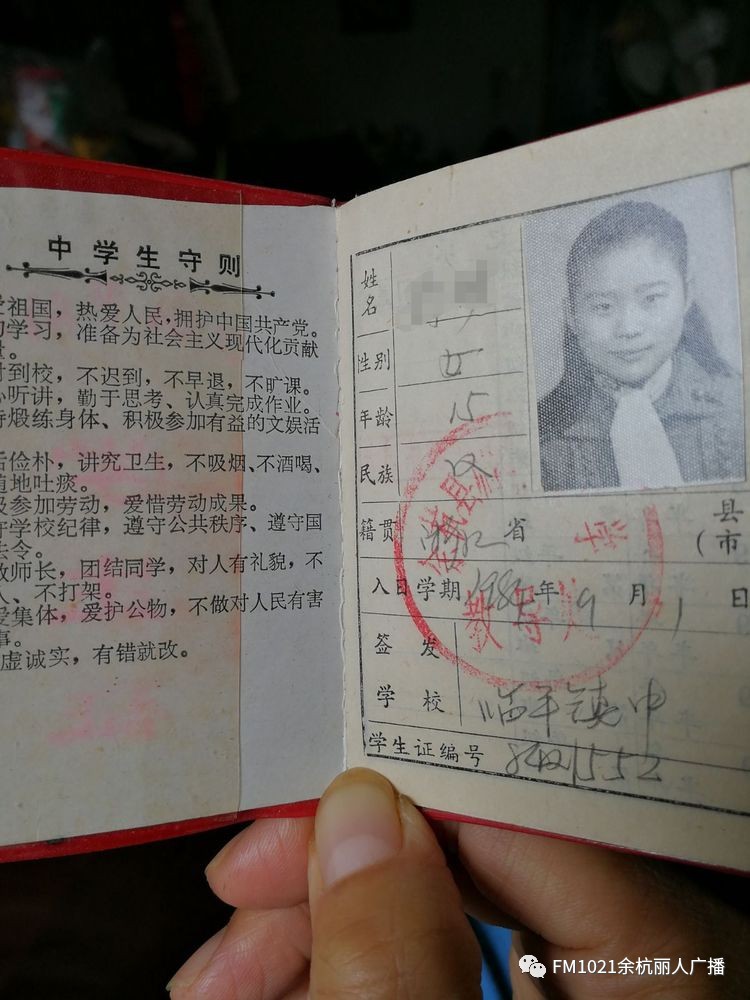 中学生守则
爱祖国，热爱人民，拥护中国共产党。
学习，准备为社会主义现代化贡献
到校，不迟到，不早退，不旷课。
心听讲，勤于思考、认真完成作业。
持煅练身体、积极参加有益的文娱活
俭朴，讲究卫生，不吸烟、不酒喝、
随地吐痰。
极参加劳动，爱惜劳动成果。
守学校纪律，遵守公共秩序、遵守国
法令。
敬师长，团结同学，对人有礼貌，不
人、不打架。
爱集体，爱护公物，不做对人民有害
事。
虚诚实，有错就改。
姓名
性别 女
年龄 15
民族 汉
籍贯 浙江 省 县(市
入日学期 198 年 9 月 1 日
签发
学校 临平镇中
学生证编号
余杭县
教导
FM1021余杭丽人广播